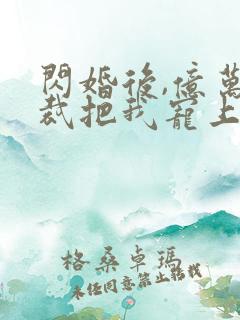 閃婚後,億萬
裁把我寵上
格桑卓瑪
未經同意禁止轉載